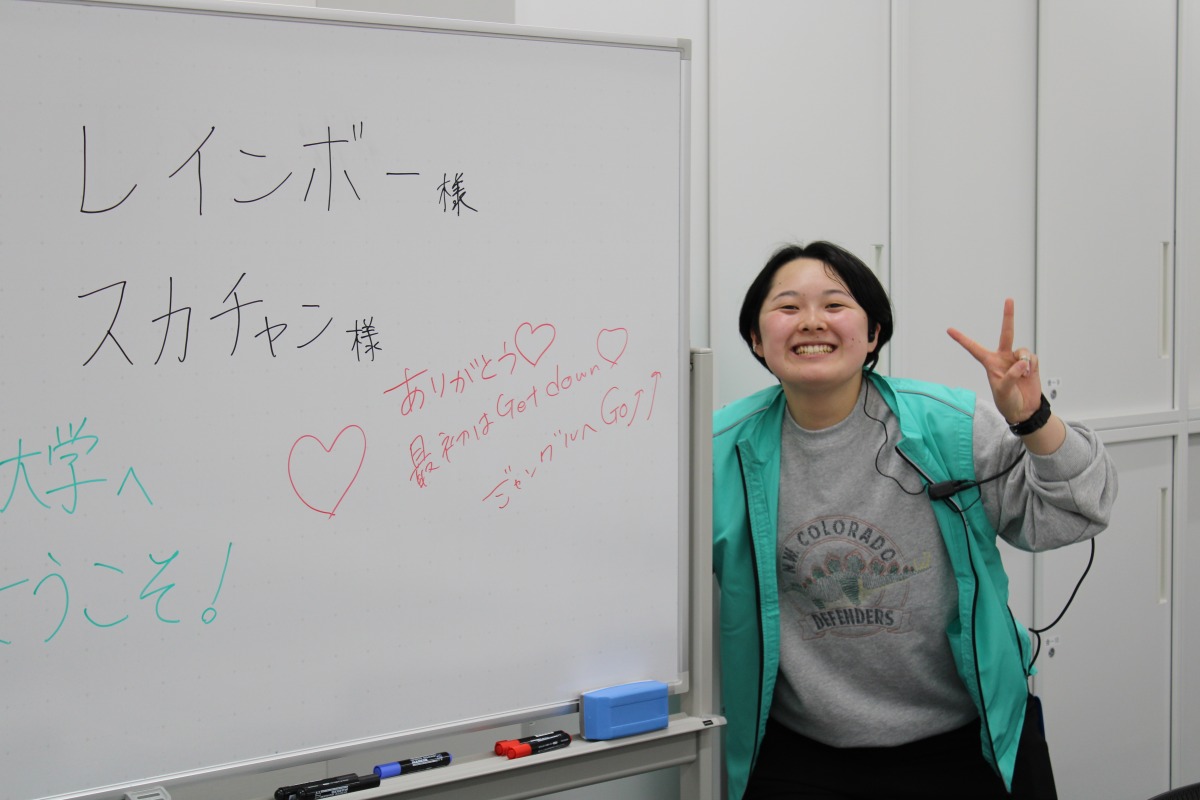 レインボー様
スカチャン様
ありがとう♡
最初はGet down♡
ジャングルへGo↑↑
大学へ
ようこそ!
N.W. COLORADO
DEFENDERS